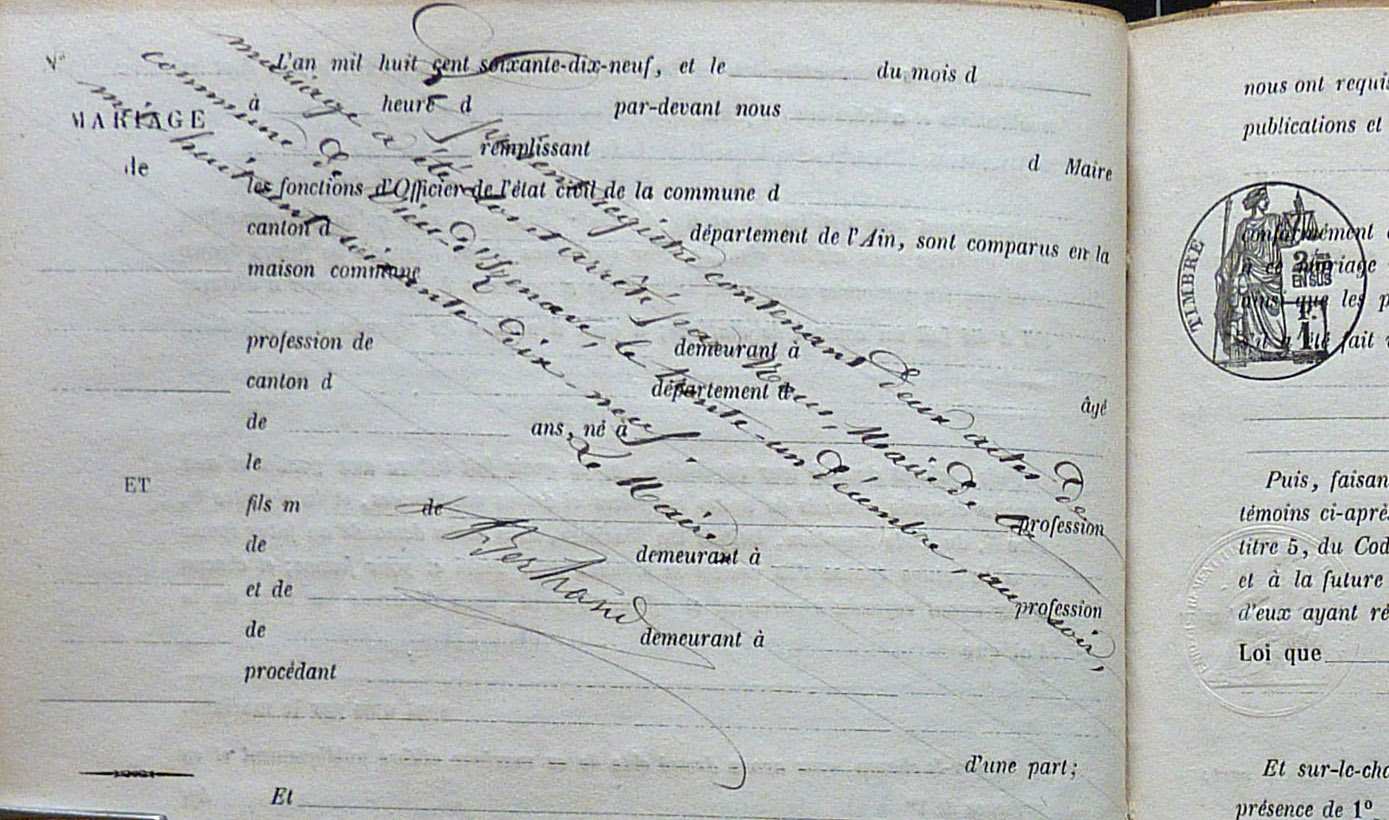 L'an mil huit cent soixante-dix-neuf, et le du mois d
MARIAGE
à heure d par-devant nous
remplissant d Maire
de
les fonctions d'Officier de l'état civil de la commune d
canton d département de l'Ain, sont comparus en la
maison commune
profession de demeurant à
canton d département d âgé
de ans, né à
le
ET
fils m de profession
de demeurant à
et de profession
de demeurant à
procédant
d'une part;
Et
présent registre contenant deux actes de
mariage a été clos et arrêté par Nous, Maire de la
commune de Dieu-d'Ozenave, le trente-un Décembre, au soir,
mil huit cent soixante-dix-neuf.
Le Maire
Bertrand
nous ont requis
publications et
conformément
à ce mariage
ainsi que les p
fait
TIMBRE
2/10
EN SUS
1
Puis, faisan
témoins ci-aprè
titre 5, du Cod
et à la future
d'eux ayant ré
Loi que
Et sur-le-cha
présence de 1º